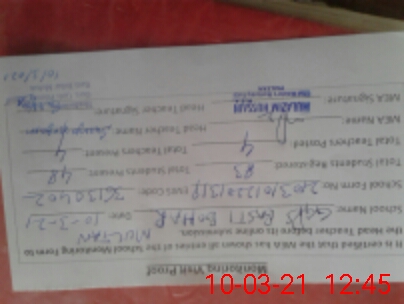 Monitoring Visit Proof
It is certified that the MEA has shown all entries of the School Monitoring Form to
the Head Teacher before its online submission.
MULTAN
School Name: GGPS BASTI BOHAR Date: 10-3-21
School Form No: EMIS Code: 36130402
Total Students Registered: 83 Total Students Present: 48
Total Teachers Posted: 4 Total Teachers Present: 4
MEA Name: Head Teacher Name:
MEA Signature: Head Teacher Signature:
10/3/2021
10-03-21 12:45